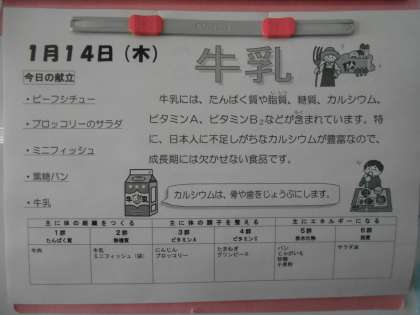 1月14日（木）
牛乳
今日の献立
・ビーフシチュー
・ブロッコリーのサラダ
・ミニフィッシュ
・黒糖パン
・牛乳
牛乳には、たんぱく質や脂質、糖質、カルシウム、
ビタミンA、ビタミンB2などが含まれています。特
に、日本人に不足しがちなカルシウムが豊富なので、
成長期には欠かせない食品です。
牛乳
カルシウムは、骨や歯をじょうぶにします。
主に体の組織をつくる 主に体の調子を整える 主にエネルギーになる
1群 2群 3群 4群 5群 6群
たんぱく質 無機質 ビタミンA ビタミンC 炭水化物 脂質
牛肉 牛乳 にんじん たまねぎ パン サラダ油
ミニフィッシュ（袋） ブロッコリー グリンピース じゃがいも
砂糖
小麦粉